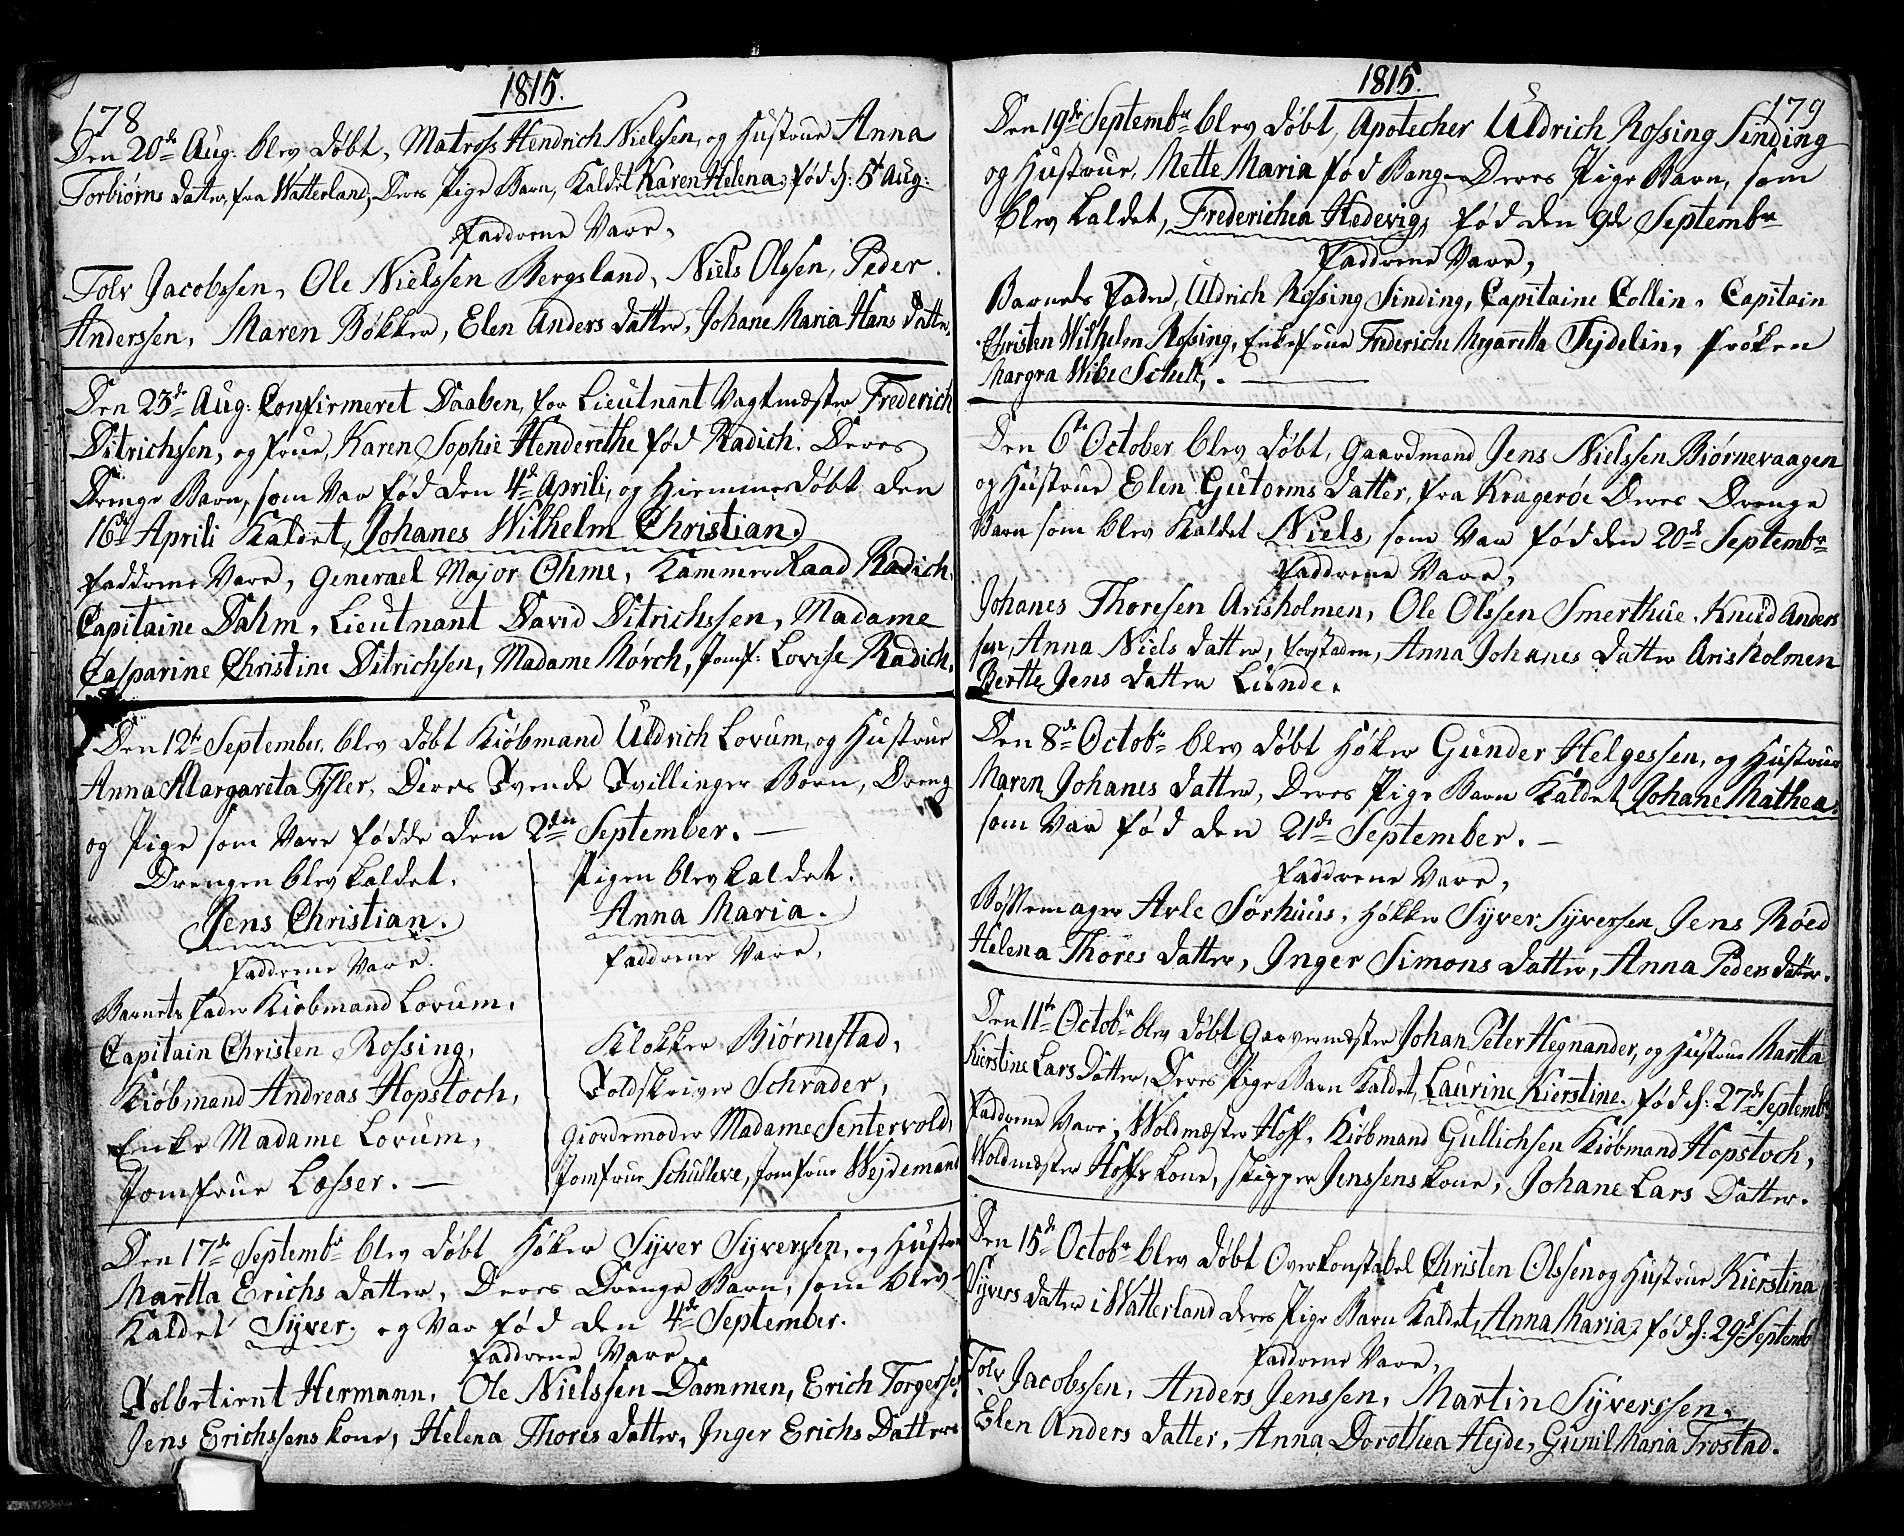 178
1815.
Den 20de Aug: blev Døbt, Matross Hendrich Nielssen, og Hustrue Anna
Torbiørns Datter, fra Watterland, Deres Pige Barn, Kaldet Karen Helena, fød d: 5t Aug:
Faddrene Vare,
Tolv Jacobssen, Ole Nielssen Bergsland, Niels Olssen, Peder
Anderssen, Maren Bøkker, Elen Anders Datter, Johane Maria Hans Datter.
Den 23de Aug: Confirmeret Daaben, for Lieutnant Vagtmester Frederich
Ditrichsen, og Frue, Karen Sophie Henderethe fød Radich. Deres
Drenge Barn, som Var fød den 4de Aprili, og Hiemme Døbt den
16de Aprili Kaldet, Johanes Wilhelm Christian.
Faddrene Vare, Generael Major Ohme, Kammer Raad Radich,
Capitaine Dahm, Lieutnant David Ditrichssen, Madame
Casparine Christine Ditrichsen, Madame Mørch, Jomf: Lovise Radich.
Den 12te September blev Døbt Kiøbmand Uldrich Lorum, og Hustrue
Anna Margareta Isler, Deres Tvende Tvillinger Børn, Dreng
og Pige som Vare fødde den 2den September. —
Drengen blev kaldet.
Jens Christian.
Faddrene Vare.
Barnets Fader Kiøbmand Lorum,
Capitain Christen Rossing,
Kiøbmand Andreas Hopstoch,
Enke Madame Lorum,
Jomfrue Lasser. —
Pigen blev kaldet.
Anna Maria.
Faddrene Vare,
Klokker Biørnestad,
Toldskriver Schrader,
Giordemoder Madame Sentervold,
Jomfrue Schulleve, Jomfrue Wejdemann
Den 17de Septembr blev Døbt Høker Syver Syverssen, og Hustrue
Martta Erichs Datter, Deres Drenge Barn, som blev
Kaldet Syver. og Var fød den 4de September.
Faddrene Vare,
Tolbetient Hermann, Ole Nielssen Dammen, Erich Torgerssen
Jens Erichssens kone, Helena Thores Datter, Inger Erichs Datter
1815.
179
Den 19de Septembr blev Døbt, Apotecher Uldrich Rossing Sinding
og Hustrue, Mette Maria fød Bang Deres Pige Barn, som
blev kaldet, Frederichea Hedevig, fød den 9de Septembr
Faddrene Vare,
Barnets Fader, Uldrich Rossing Sinding, Capitaine Collin, Capitain
Christen Wilhelm Rossing, Enkefrue Frederiche Mrgaretta Tejdelin, frøken
Margra Wibe Schelt,. —
Den 6te October blev Døbt, Gaardmand Jens Nielssen Biørnevaagen
og Hustrue Elen Gutorms Datter, fra Kragerøe Deres Drenge
Barn som blev Kaldet Niels, som Var fød den 20de Septembr
Faddrene Vare,
Johanes Thoresen Arisholmen, Ole Olssen Smerthue, Knud Anders
sen, Anna Niels Datter, Forstaden, Anna Johanes Datter Arisholmen
Bertte Jens Datter Lunde.
Den 8de Octobr blev Døbt Høker Gunder Helgessen, og Hustrue
Maren Johanes Datter, Deres Pige Barn Kaldet Johane Mathea.
som Var fød den 21de September. —
Faddrene Vare,
Bøssemager Arle Sørhuus, Høkker Syver Syversen Jens Røed
Helena Thores Datter, Inger Simons Datter, Anna Peders Datter.
Den 11te Octobr blev Døbt Garvermester Johan Peter Hegnander, og Hustrue Martta
Kierstine Lars Datter, Deres Pige Barn Kaldet, Laurine Kierstine. fød d: 27de Septembr
Faddrene Vare, Woldmester Hoff, Kiøbmand Gullichsen Kiøbmand Hopstoch,
Woldmester Hoffs kone, skipper Jenssens kone, Johane Lars Datter.
Den 15de Octobr blev Døbt Overkonstabel Christen Olssen og Hustrue Kierstina
Syvers Datter i Watterland deres Pige Barn Kaldet, Anna Maria, fød d: 29de Septemb
Faddrene Vare,
Tolv Jacobssen, Anders Jenssen, Martin Syverssen,
Elen Anders Datter, Anna Dorothea Hejde, Gunil Maria Trostad.